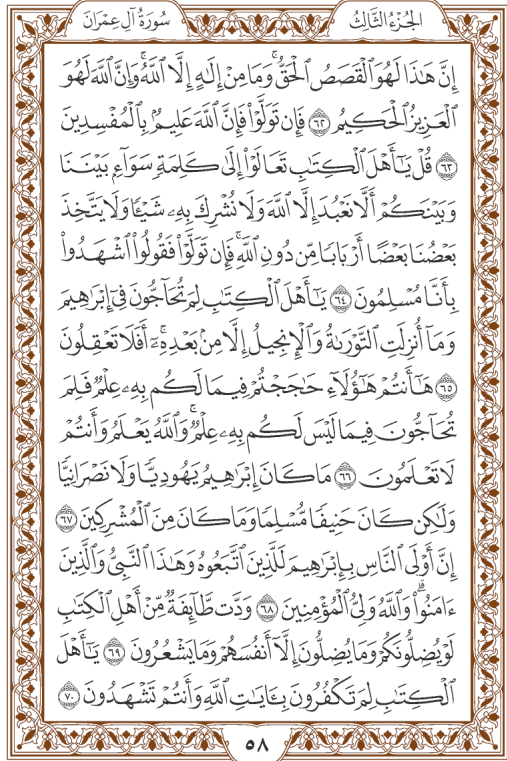 الجُزْءُ الثَّالِثُ
سُورَةُ آلِ عِمْرَانَ
إِنَّ هَٰذَا لَهُوَ ٱلْقَصَصُ ٱلْحَقُّۚ وَمَا مِنْ إِلَٰهٍ إِلَّا ٱللَّهُۚ وَإِنَّ ٱللَّهَ لَهُوَ
ٱلْعَزِيزُ ٱلْحَكِيمُ ٦٢ فَإِن تَوَلَّوْا۟ فَإِنَّ ٱللَّهَ عَلِيمٌۢ بِٱلْمُفْسِدِينَ
٦٣ قُلْ يَٰٓأَهْلَ ٱلْكِتَٰبِ تَعَالَوْا۟ إِلَىٰ كَلِمَةٍ سَوَآءٍۭ بَيْنَنَا
وَبَيْنَكُمْ أَلَّا نَعْبُدَ إِلَّا ٱللَّهَ وَلَا نُشْرِكَ بِهِۦ شَيْـًٔا وَلَا يَتَّخِذَ
بَعْضُنَا بَعْضًا أَرْبَابًا مِّن دُونِ ٱللَّهِۚ فَإِن تَوَلَّوْا۟ فَقُولُوا۟ ٱشْهَدُوا۟
بِأَنَّا مُسْلِمُونَ ٦٤ يَٰٓأَهْلَ ٱلْكِتَٰبِ لِمَ تُحَآجُّونَ فِىٓ إِبْرَٰهِيمَ
وَمَآ أُنزِلَتِ ٱلتَّوْرَىٰةُ وَٱلْإِنجِيلُ إِلَّا مِنۢ بَعْدِهِۦٓۚ أَفَلَا تَعْقِلُونَ
٦٥ هَٰٓأَنتُمْ هَٰٓؤُلَآءِ حَٰجَجْتُمْ فِيمَا لَكُم بِهِۦ عِلْمٌ فَلِمَ
تُحَآجُّونَ فِيمَا لَيْسَ لَكُم بِهِۦ عِلْمٌۚ وَٱللَّهُ يَعْلَمُ وَأَنتُمْ
لَا تَعْلَمُونَ ٦٦ مَا كَانَ إِبْرَٰهِيمُ يَهُودِيًّا وَلَا نَصْرَانِيًّا
وَلَٰكِن كَانَ حَنِيفًا مُّسْلِمًا وَمَا كَانَ مِنَ ٱلْمُشْرِكِينَ ٦٧
إِنَّ أَوْلَى ٱلنَّاسِ بِإِبْرَٰهِيمَ لَلَّذِينَ ٱتَّبَعُوهُ وَهَٰذَا ٱلنَّبِىُّ وَٱلَّذِينَ
ءَامَنُوا۟ۗ وَٱللَّهُ وَلِىُّ ٱلْمُؤْمِنِينَ ٦٨ وَدَّت طَّآئِفَةٌ مِّنْ أَهْلِ ٱلْكِتَٰبِ
لَوْ يُضِلُّونَكُمْ وَمَا يُضِلُّونَ إِلَّآ أَنفُسَهُمْ وَمَا يَشْعُرُونَ ٦٩ يَٰٓأَهْلَ
ٱلْكِتَٰبِ لِمَ تَكْفُرُونَ بِـَٔايَٰتِ ٱللَّهِ وَأَنتُمْ تَشْهَدُونَ ٧٠
٥٨